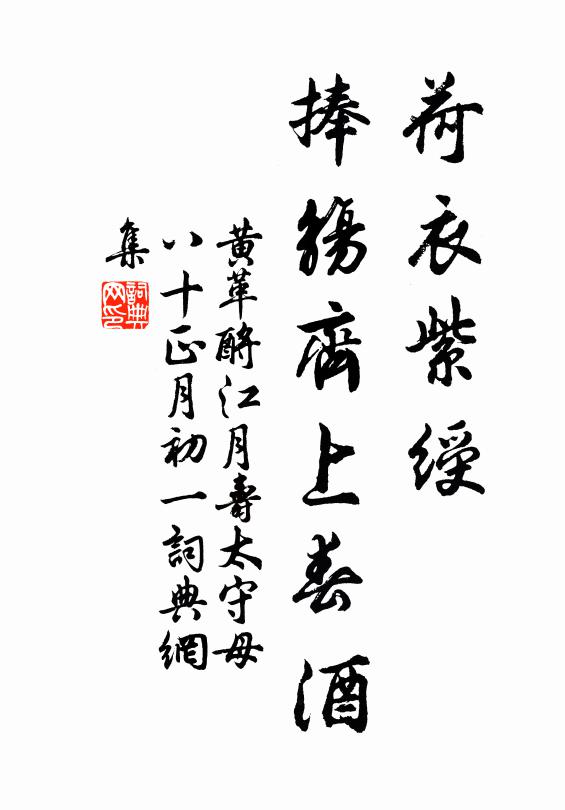 荷衣紫綬
捧觴齊上春酒
黄革酹江月壽太守母
八十正月初一詞典網
集
詞典网印